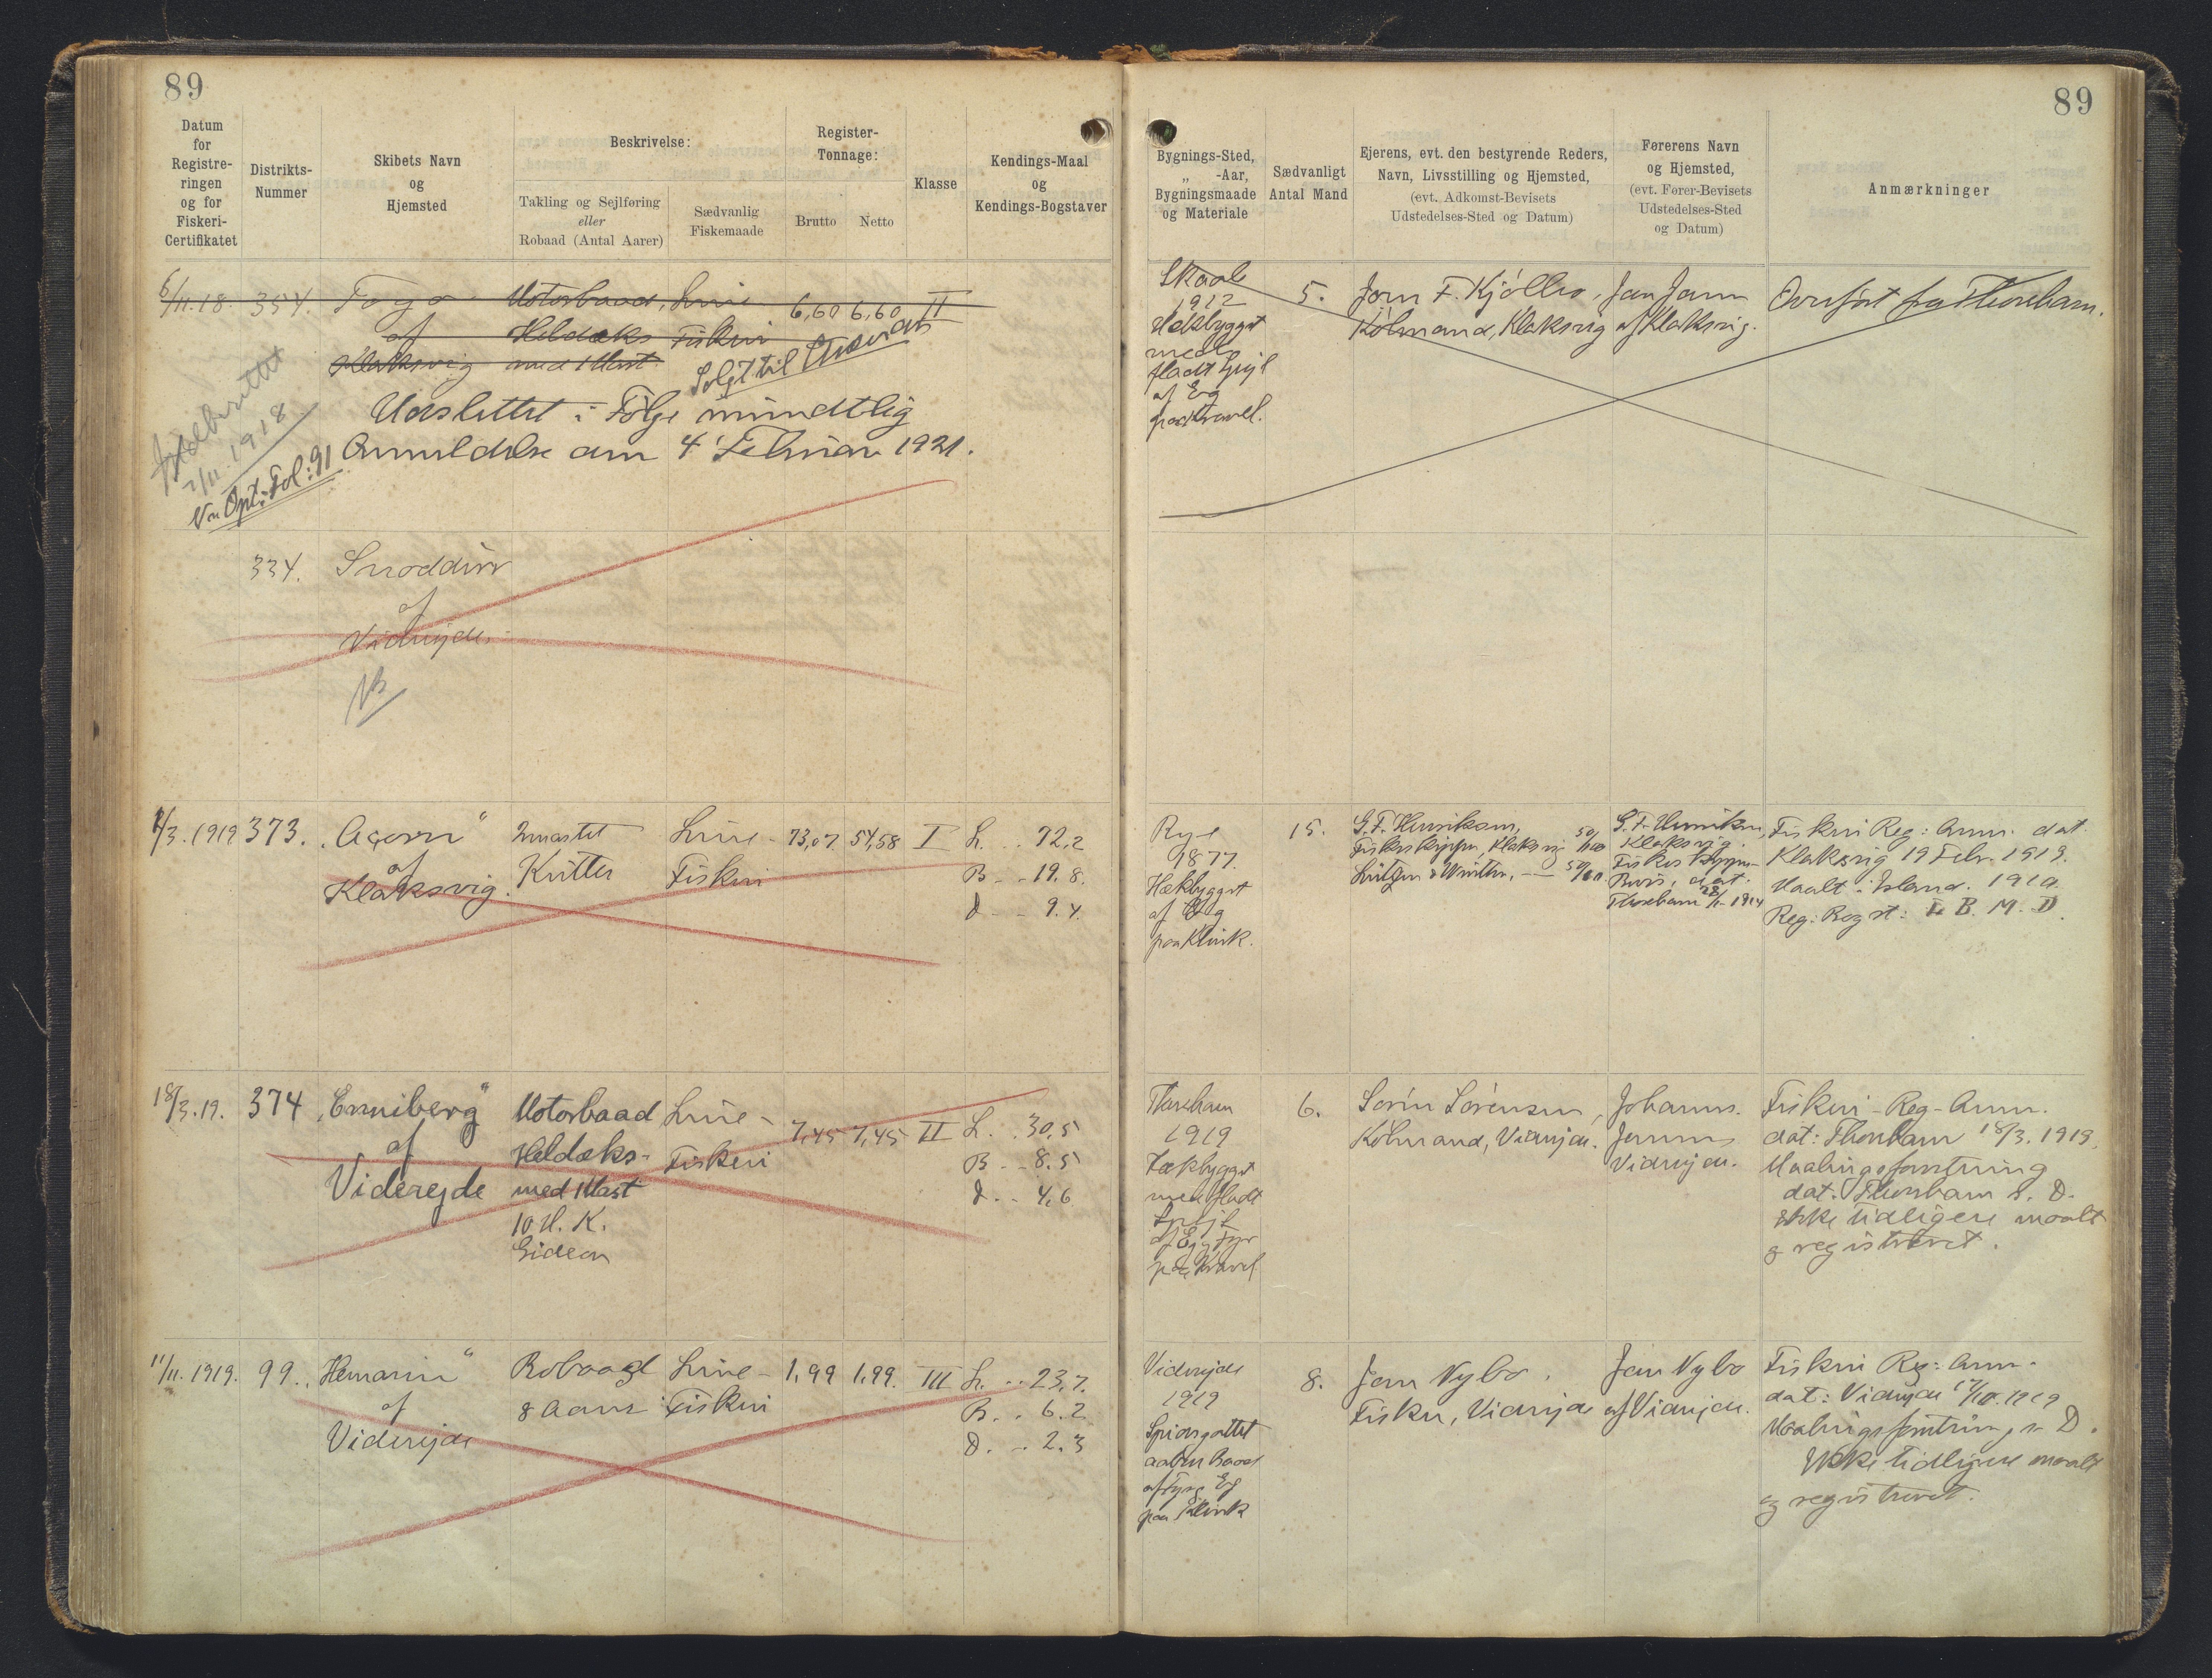 89
89
Datum
for
Registre-
ringen
og for
Fiskeri-
Certifikatet
Distrikts-
Nummer
Skibets Navn
og
Hjemsted
Beskrivelse:
Takling og Sejlføring
eller
Robaad (Antal Aarer)
Sædvanlig
Fiskemaade
Register-
Tonnage:
Brutto Netto
Klasse
Kendings-Maal
og
Kendings-Bogstaver
Bygnings-Sted,
„ -Aar,
Bygningsmaade
og Materiale
Sædvanligt
Antal Mand
Ejerens, evt. den bestyrende Reders,
Navn, Livsstilling og Hjemsted,
(evt. Adkomst-Bevisets
Udstedelses-Sted og Datum)
Førerens Navn
og Hjemsted,
(evt. Fører-Bevisets
Udstedelses-Sted
og Datum)
Anmærkninger
6/11.18. 354. Togo Motorbaad, Line- 6,60 6,60 II
af Heldæks Fiskeri
Klaksvig med 1 Mast
Solgt til
Udslettet i Følge mundtlig
Anmeldelse am 4' Februar 1921.
Indberettet
7/11. 1918
Opt: Fol: 91
Skaale
1912
Hækbygget
med
fladt Spejl
af Eg
paa Kravel.
5.
Jørn F. Kjølbro,
Købmand, Klaksvig
Jan Jann
af Klaksvig.
Overført fra Thorshavn.
334. Snoddur
af
Viderejde.
373. „Acorn"
af
Klaksvig.
/3. 1919
2mastet
Kutter
Line-
Fiskeri
73,07 54,58 I
L. .. 72,2
B - - 19,8.
D - - 9.4.
Rye
1877.
Hækbygget
af Eg
paa Klink.
15.
G. F. Henriksen,
Fiskeskipper, Klaksvig 50/100
Lützen & Winther, — 50/100
G. F. Henriksen,
Klaksvig.
Fiskeskipper-
Bevis, dat.
Thorshavn 1914
Fiskeri Reg: Anm. dat.
Klaksvig 19 Febr. 1919.
Maalt i Island. 1910.
Reg: Bogst: B. M. D.
18/3.19. 374 „Enniberg"
af
Viderejde
Motorbaad
Heldæks-
med 1 Mast
10 H. K.
Gideon
Line-
Fiskeri
7,45 7,45 II
L. .. 30,5
B - - 8.5
D. - - 4,6
Thorshavn
1919
Hækbygget
med fladt
Spejl
af Eg og Fyr
paa Kravel
6.
Sørin Sørensen,
Købmand, Viderejde.
Johannes
Viderejde.
Fiskeri-Reg-Anm.
dat: Thorshavn 18/3. 1919.
Maalingsforretning
dat. Thorshavn s. D.
Ikke tidligere maalt
og registreret.
11/11. 1919. 99. „Hemarin"
af
Videreide
Robaad
8 Aarer
Line-
Fiskeri
1,99 1,99. III
L. .. 23,7.
B. . 6.2
D. .. 2.3
Videreide
1919
Spidsgattet
aaben Baad
af Fyr og Eg
paa Klink
8.
Jan Nybo,
Fisker, Videreide
Jan Nybo
af Videreide.
Fiskeri Reg: Anm.
dat: Videreide 1919
Maalingsforretning s. D.
Ikke tidligere maalt
og registreret.